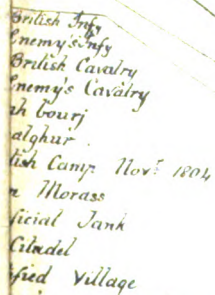 British Infy
Enemy's Infy
British Cavalry
Enemy's Cavalry
h bourj
alghur
lish Camp Novr. 1804
Morass
ficial Tank
Citadel
fied Village